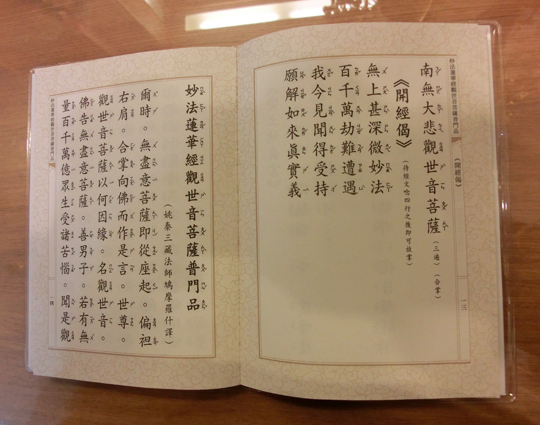 南無大悲觀世音菩薩(三遍)(合掌)
《開經偈》
無上甚深微妙法
百千萬劫難遭遇
我今見聞得受持
願解如來眞實義
妙法蓮華經觀世音菩薩普門品
(姚秦三藏法師鳩摩羅什譯)
爾時。無盡意菩薩即從座起。偏袒
右肩。合掌向佛而作是言。世尊。
觀世音菩薩以何因緣。名觀世音。
佛告無盡意菩薩。善男子。若有無
量百千萬億眾生受諸苦惱。聞是觀
妙法蓮華經觀世音菩薩普門品